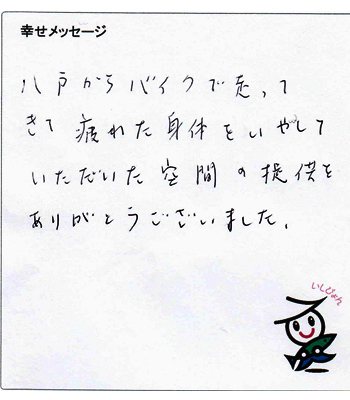 幸せメッセージ
八戸からバイクで走って
きて疲れた身体をいやして
いただいた空間の提供を
ありがとうございました。
いしぴょん